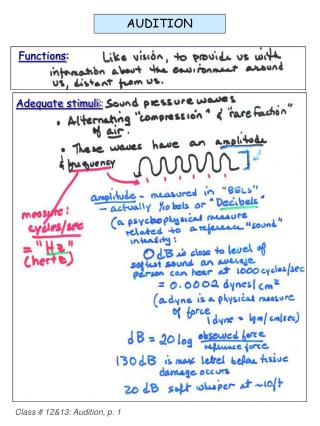 AUDITION
Functions: Like vision, to provide us with
information about the environment around
us, distant from us.
Adequate stimuli: Sound pressure waves
• Alternating "compression" & "rarefaction"
of air.
• These waves have an amplitude
& frequency
amplitude - measured in "BELS"
- actually 1/10 bels or "Decibels"
(a psychophysical measure
related to a reference "sound"
intensity:
measure:
cycles/sec
= "Hz"
(hertz)
0 dB is close to level of
softest sound an average
person can hear at 1000 cycles/sec
= 0.0002 dynes/cm²
(a dyne is a physical measure
of force
1 dyne = 1gm/cm/sec)
dB = 20 log observed force
reference force
130 dB is max level before tissue
damage occurs
20 dB soft whisper at ~10ft
Class # 12&13: Audition, p. 1